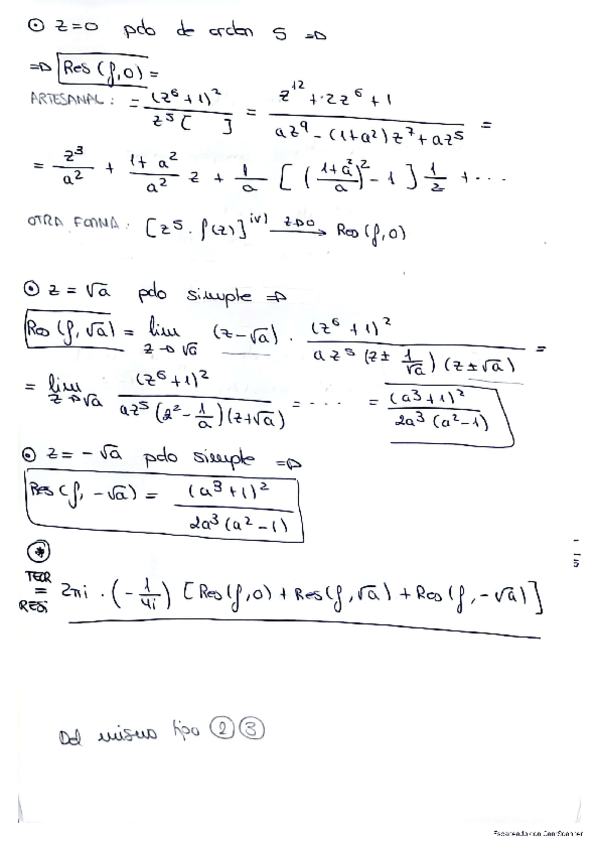 ⊙ z=0 polo de orden 5 ⇒
⇒ Res(f,0) =
ARTESANAL: = (z⁶+1)² / z⁵[ ] = z¹² + 2z⁶ + 1 / az⁹ - (1+a²)z⁷ + az⁵ =
= z³/a² + 1+a²/a² z + 1/a [ (1+a²/a)² - 1 ] 1/z + ...
OTRA FORMA: [z⁵ · f(z)]^(iv) →(z→0) Res(f,0)
⊙ z = √a polo simple ⇒
Res(f,√a) = lim z→√a (z-√a) · (z⁶+1)² / az⁵(z± 1/√a)(z±√a) =
= lim z→√a (z⁶+1)² / az⁵(z² - 1/a)(z+√a) = .... = (a³+1)² / 2a³(a²-1)
⊙ z = -√a polo simple ⇒
Res(f,-√a) = (a³+1)² / 2a³(a²-1)
⊛
TEOR RESI = 2πi · (-1/4i) [Res(f,0) + Res(f,√a) + Res(f,-√a)]
Del mismo tipo ② ③
Escaneado con CamScanner